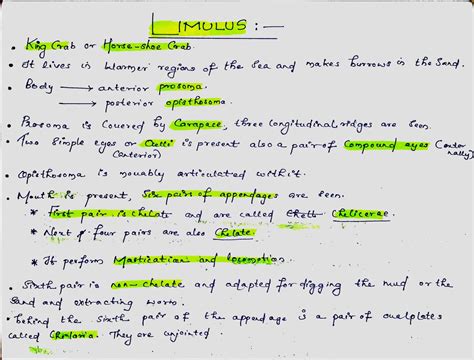 LIMULUS :-
• King Crab or Horse-shoe Crab.
• It lives in Warmer regions of the Sea and makes burrows in the Sand.
• Body → anterior prosoma.
→ posterior opisthosoma.
• Prosoma is Covered by Carapace, three longitudinal ridges are seen.
• Two Simple eyes or Ocelli is present also a pair of Compound eyes (exter
(anterior) nally)
• Opisthosoma is movably articulated with it.
• Mouth is present, Six pairs of appendages are seen.
* first pair is chelate and are called Chelicerae.
* Next four pairs are also Chelate.
* It perform Mastication and locomotion.
• Sixth pair is non-chelate and adapted for digging the mud or the
Sand and extracting worms.
• behind the sixth pair of the appendage is a pair of oval plates
called Chilaria. They are unjointed.